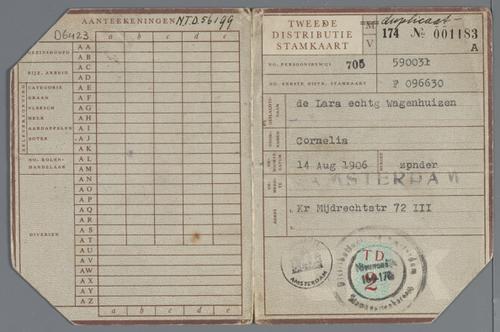 AANTEEKENINGEN N.T.D. 56199
D6423
a b c d e
GEZINSHOOFD
BIJZ. ARBEID
ZELFVERZORGING
CATEGORIE
GRAAN
VLEESCH
MELK
AARDAPPELEN
BOTER
NO. KOLEN-
HANDELAAR
DIVERSEN
AA
AB
AC
AD
AE
AF
AG
AH
AI
AJ
AK
AL
AM
AN
AO
AP
AQ
AR
AS
AT
AU
AV
AW
AX
AY
AZ
a b c d e
TWEEDE
DISTRIBUTIE
STAMKAART
M
V
duplicaat
174 No 001183
A
NO. PERSOONSBEWIJS 705 590031
NO. EERSTE DISTR. STAMKAART P 096630
de Lara echtg Wagenhuizen
Cornelia
14 Aug 1906 zonder
AMSTERDAM
ADRES 1. Kr Mijdrechtstr 72 III
2.
AMSTERDAM
T D
2